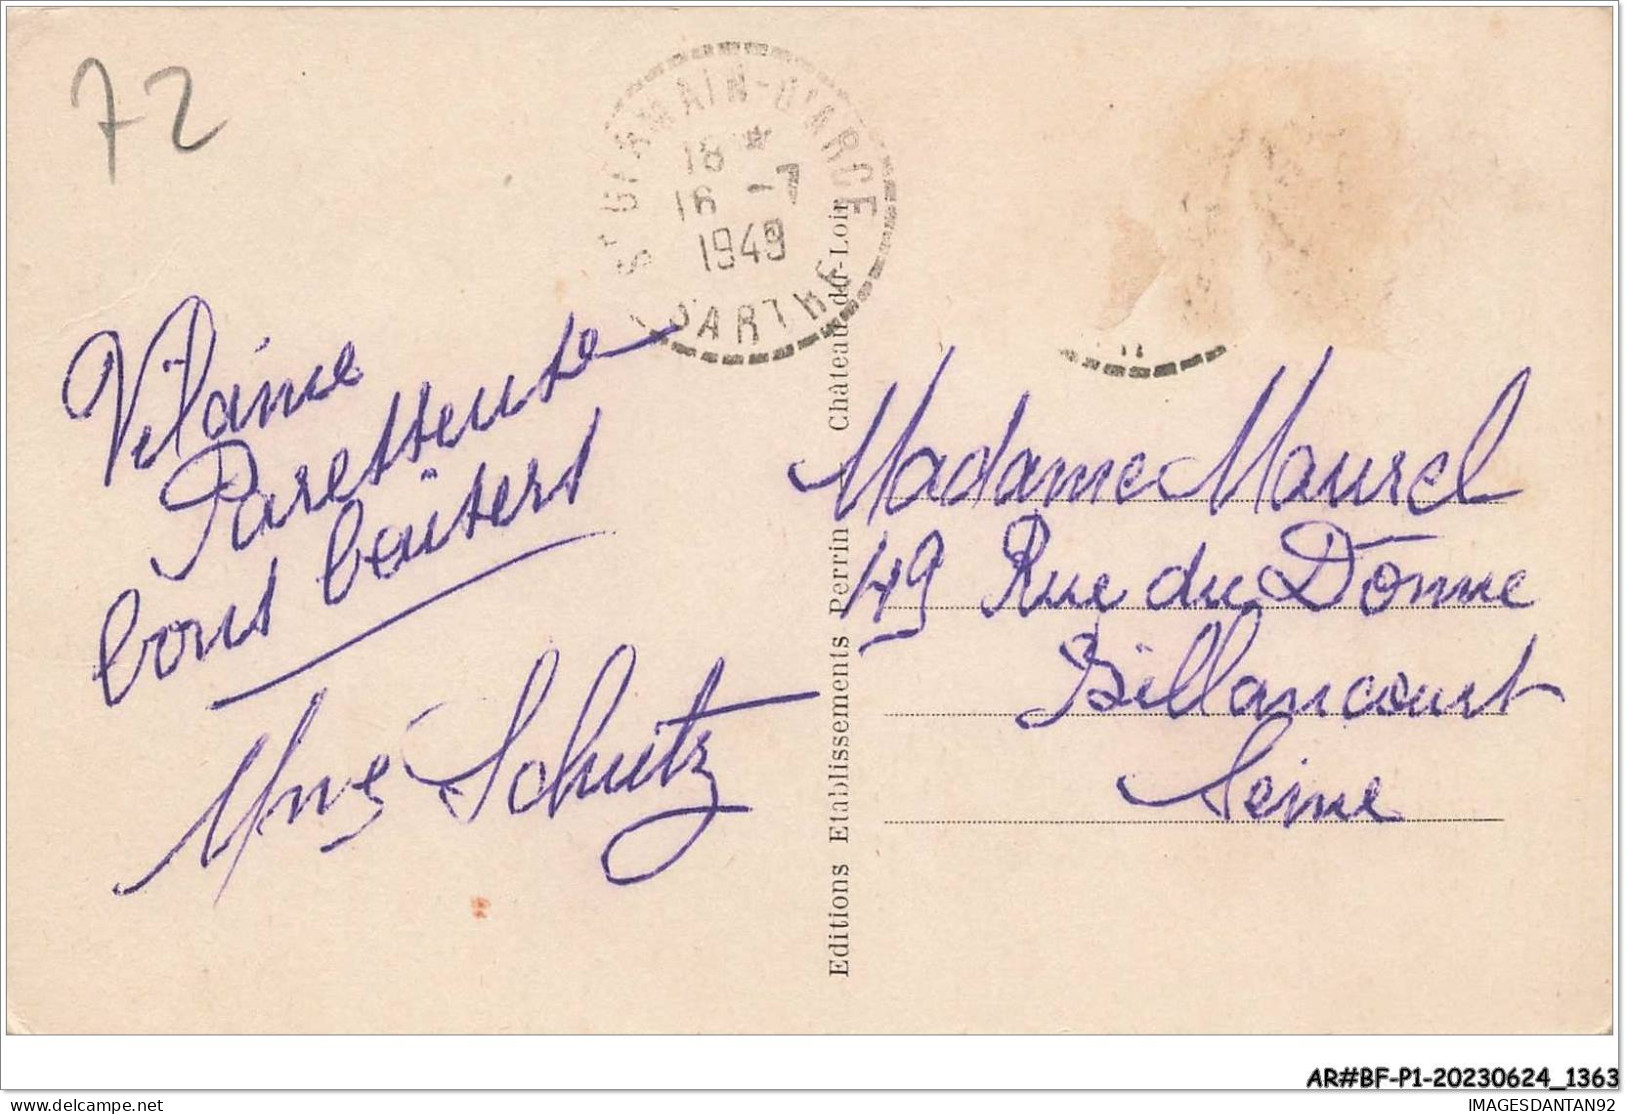 72
St GERMAIN-D'ARCE
18 *
16 -7
1949
SARTHE
Vilaine
Paresseuse
bons baisers
Mme Schutz
Editions Etablissements Perrin Chateau-du-Loir
Madame Maurel
49 Rue du Dôme
Billancourt
Seine
AR#BF-P1-20230624_1363
IMAGESDANTAN92